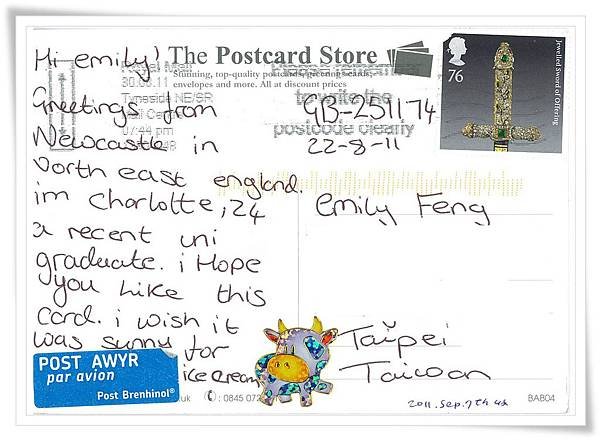 Hi emily!
The Postcard Store
Stunning, top-quality postcards, greeting cards,
envelopes and more. All at discount prices
Royal Mail
30.08.11
Tyneside NE/SR
07:44 pm
to write the
postcode clearly
76
Jewelled Sword of Offering
Greetings from
Newcastle in
North east england.
im Charlotte, 24
a recent uni
graduate. i Hope
you Like this
card. i wish it
was sunny for
ice cream
GB-251174
22-8-11
Emily Feng
Taipei
Taiwan
POST AWYR
par avion
Post Brenhinol®
uk
© 0845 072
2011.Sep.7th
BAB04